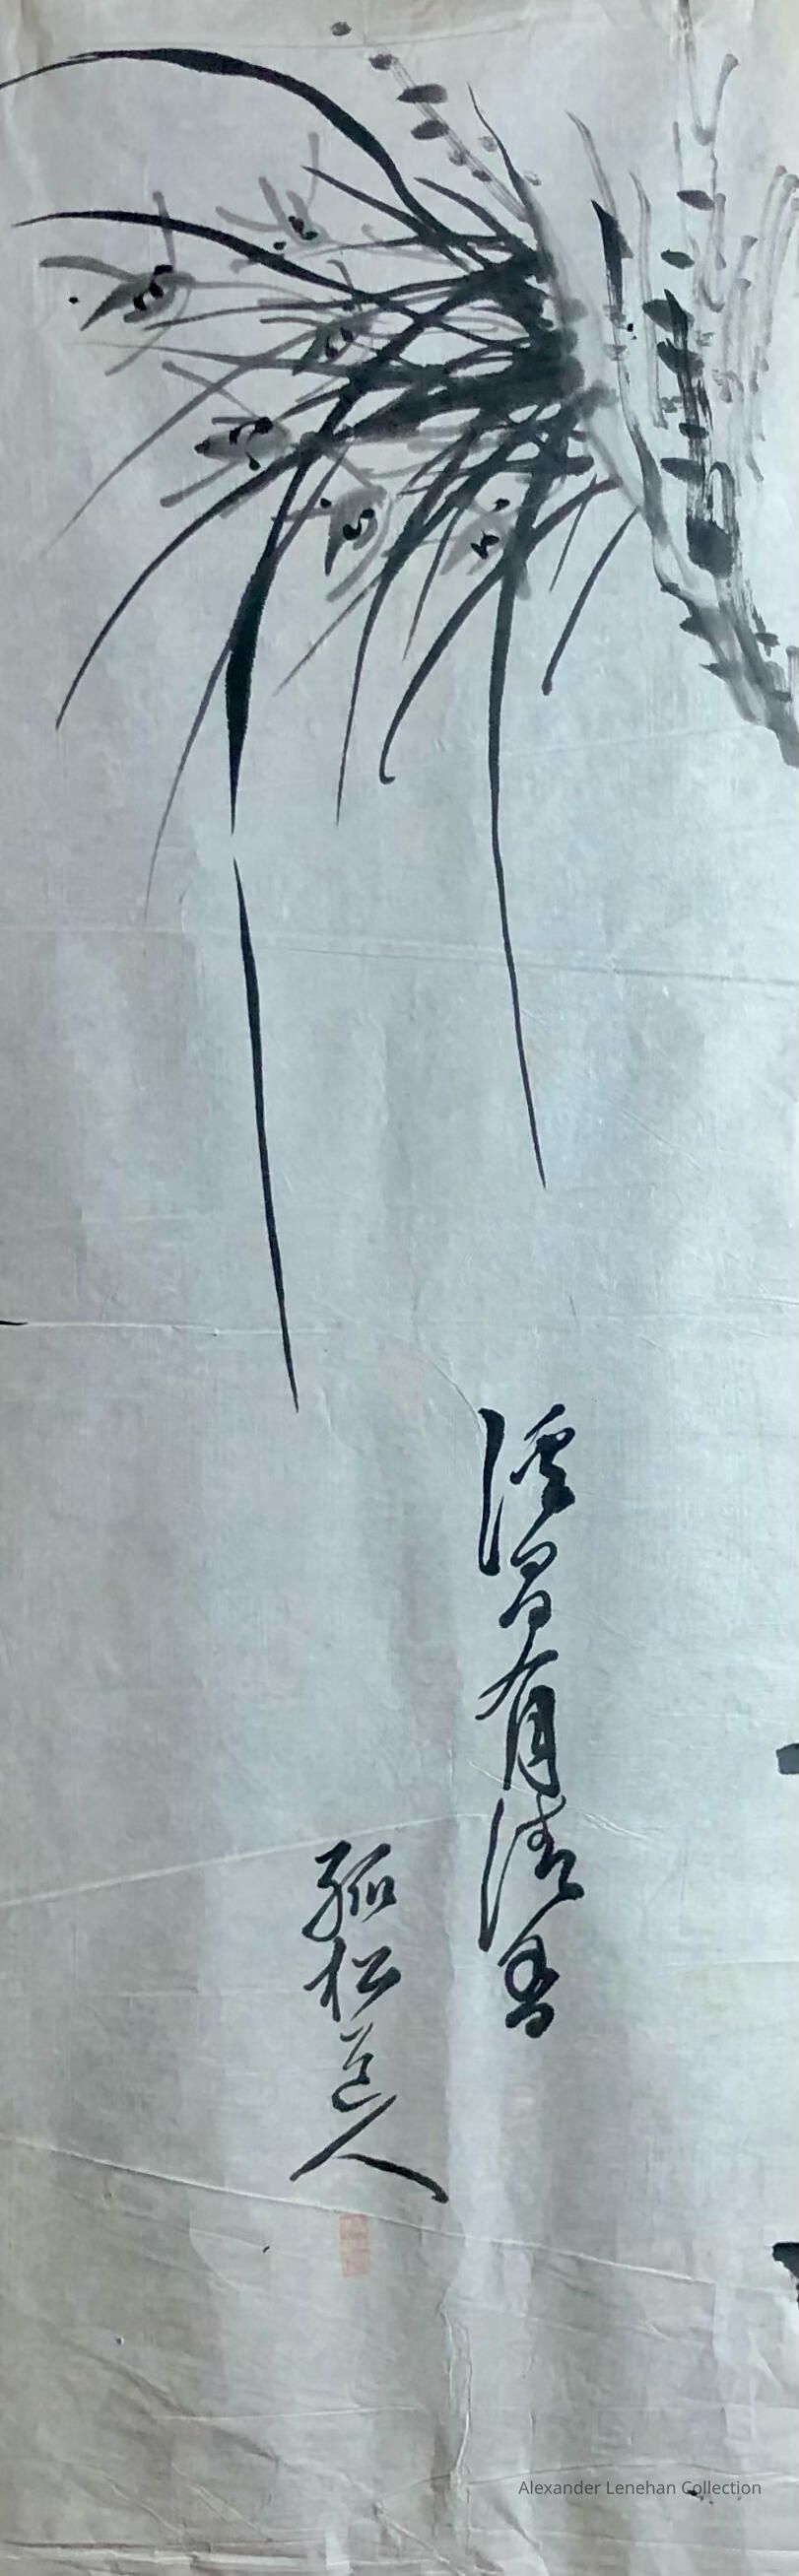 有清香
孤松道人
Alexander Lenehan Collection